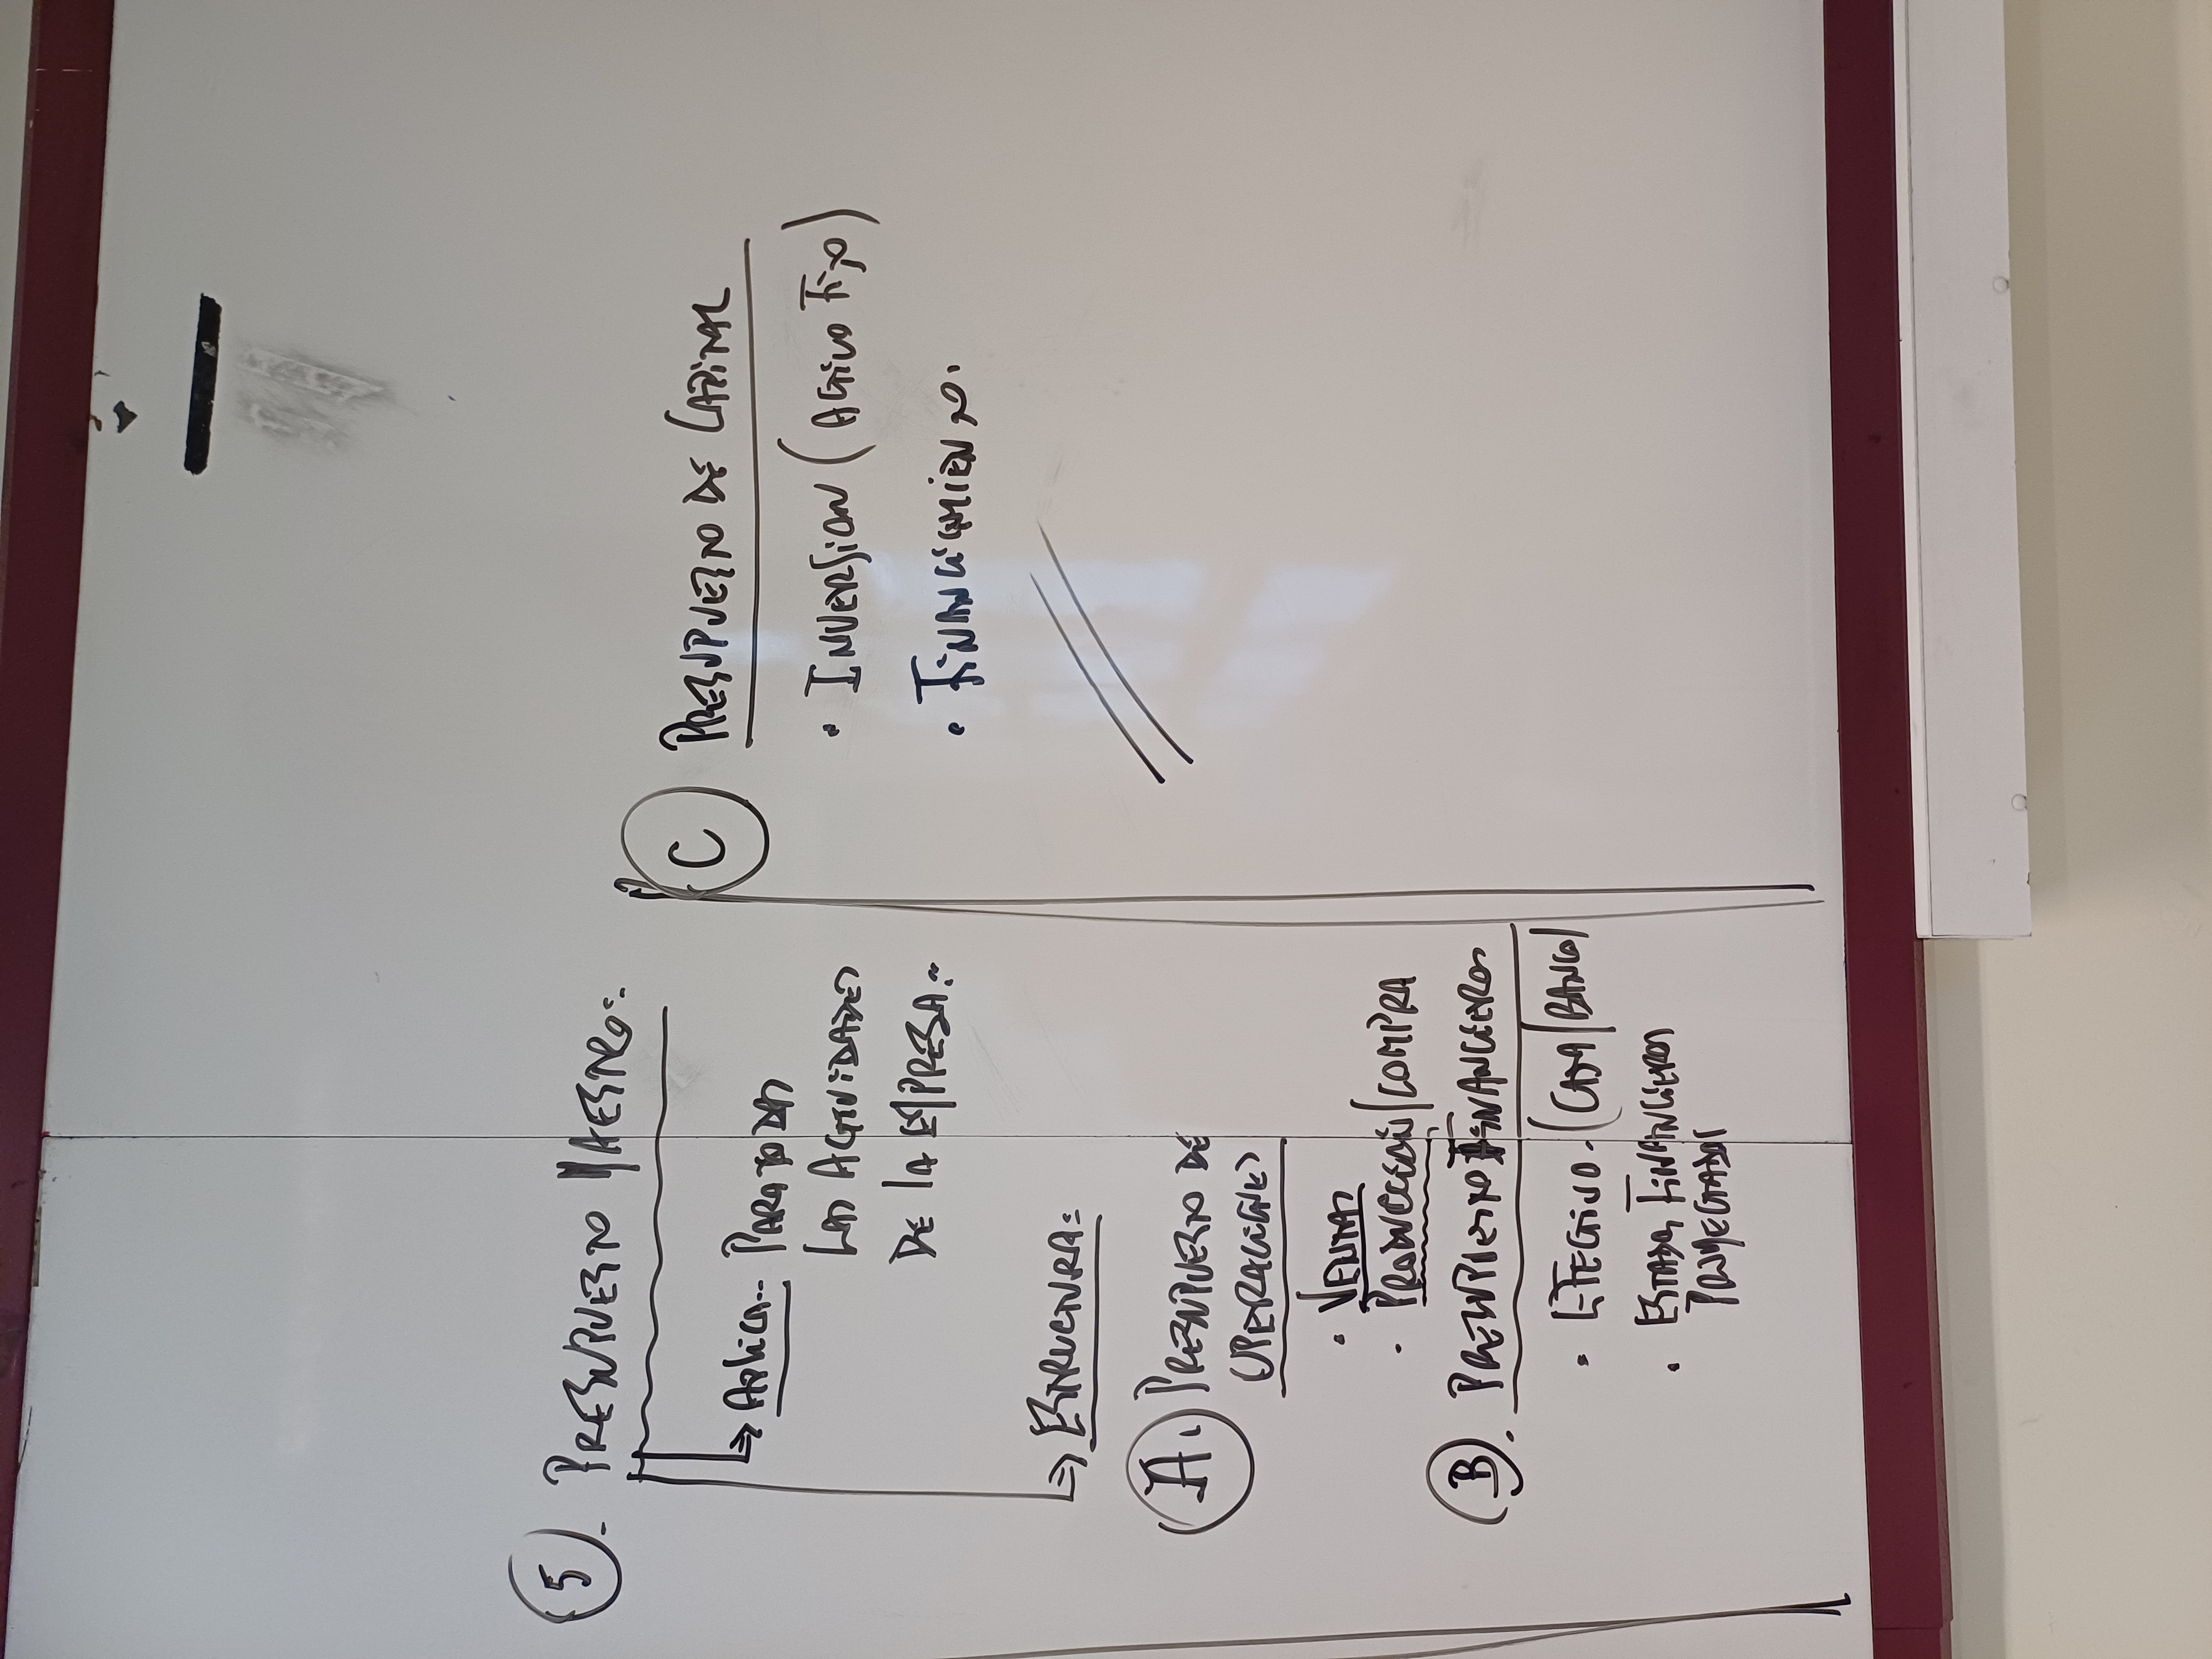 5. PRESUPUESTO MAESTRO:.
→ APLICA.. PARA TODAS
LAS ACTIVIDADES
DE LA EMPRESA:.
→ ESTRUCTURA:
A. PRESUPUESTO DE
OPERACIONES
• VENTAS
• PRODUCCIÓN/COMPRA
B. PRESUPUESTO FINANCIEROS
• EFECTIVO. (CAJA/BANCO)
• ESTADOS FINANCIEROS
PROYECTADOS
C PRESUPUESTO DE CAPITAL
• INVERSION (ACTIVO FIJO)
• FINANCIAMIENTO.